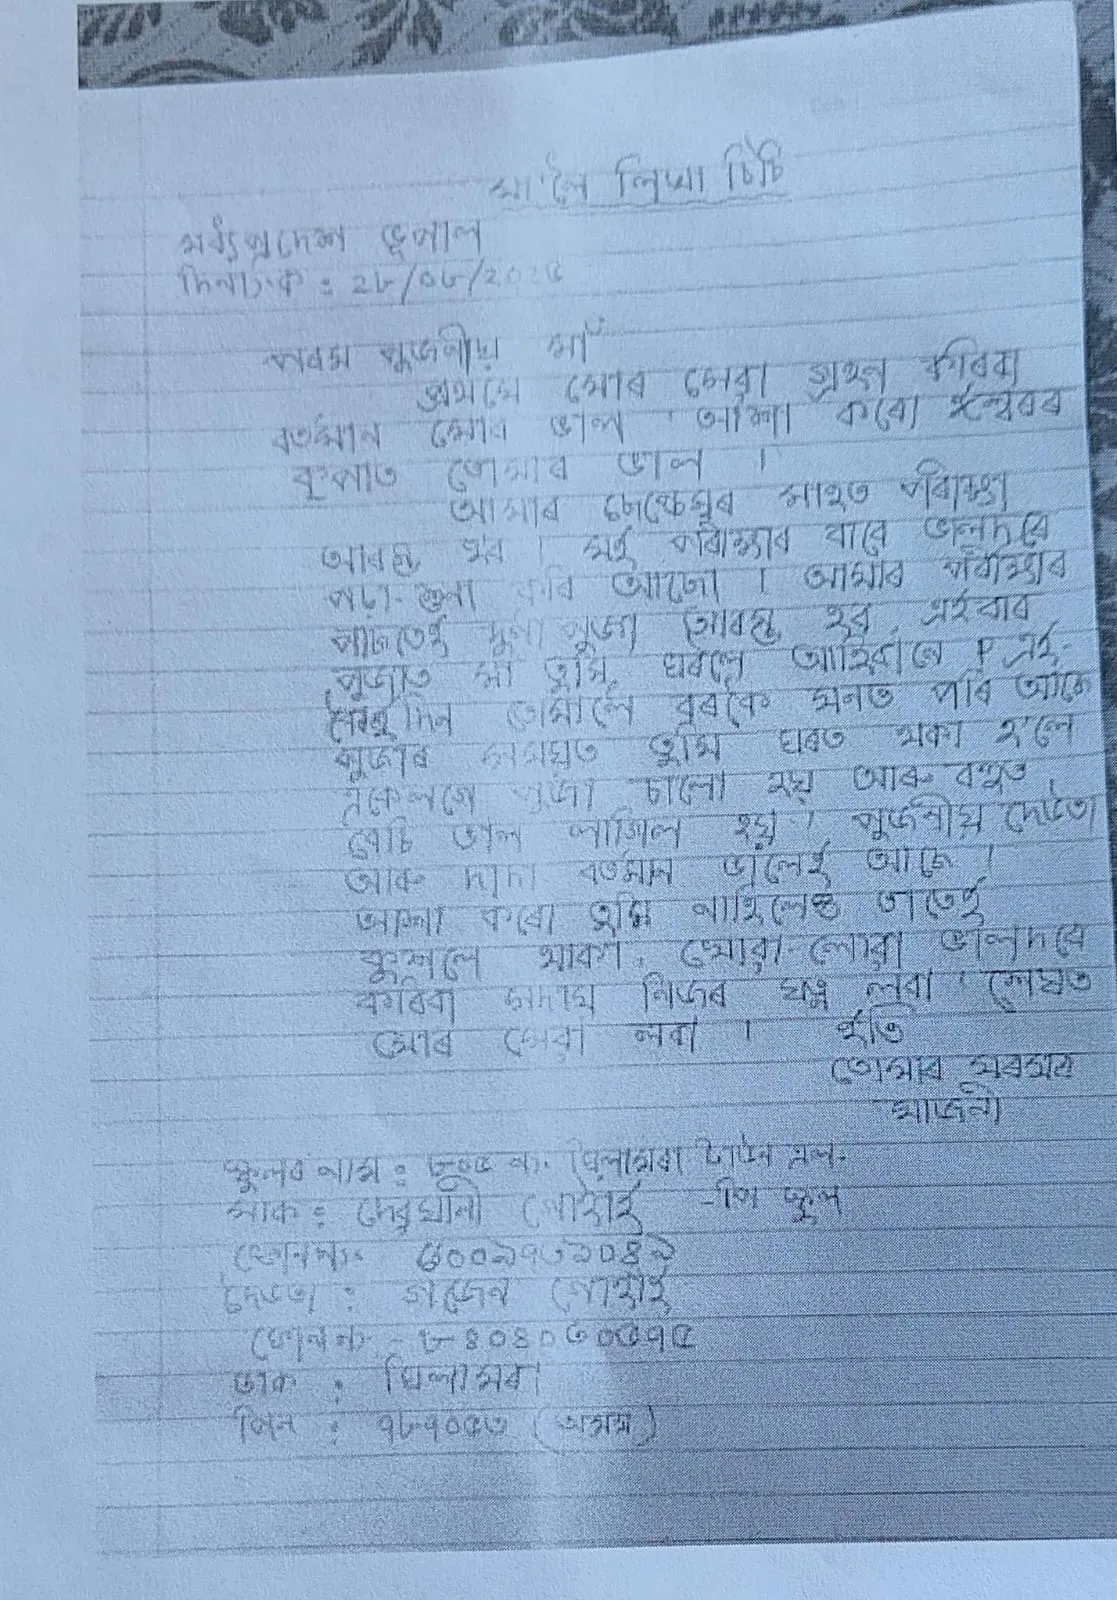 মা'লৈ লিখা চিঠি
মধ্যপ্ৰদেশ ভূপাল
দিনাংক : ২৮/০৮/২০২৫
পৰম পুজনীয় মাঁ
প্ৰথমে মোৰ সেৱা গ্ৰহন কৰিবা
বৰ্তমান মোৰ ভাল আশা কৰো ঈশ্বৰৰ
কৃপাত তোমাৰ ভাল ।
আমাৰ চেপ্তেম্বৰ মাহত পৰীক্ষা
আৰম্ভ হব । মই পৰীক্ষাৰ বাবে ভালদৰে
পঢ়া-শুনা কৰি আছো । আমাৰ পৰীক্ষাৰ
পাচতেই দূৰ্গা পুজা আৰম্ভ হব এইবাৰ
পুজাত মা তুমি ঘৰলে আহিবানে ? এই-
কেইদিন তোমালৈ বৰকৈ মনত পৰি আছে
পুজাৰ সময়ত তুমি ঘৰত থকা হ'লে
একেলগে পুজা চালো হয় আৰু বহুত
বেচি ভাল লাগিল হয় । পুৰ্জনীয় দেউতা
আৰু দাদা বৰ্তমান ভালেই আছে ।
আশা কৰো তুমি নাহিলেও তাতেই
কুশলে থাকা, খোৱা-লোৱা ভালদৰে
কৰিবা সদায় নিজৰ যত্ন লবা । শেষত
মোৰ সেৱা লবা । ইতি
তোমাৰ মৰমৰ
মাজনী
স্কুলৰ নাম : ৮০৫ নং ঘিলামৰা টাউন এল.
মাক : দেৱযানী গোহাঁই -পি স্কুল
ফোননং- ৬০০৯৭৬৯০৪৯
দেউতা : গজেন গোহাঁই
ফোননং - ৮৪০৪০৬০৫৭৫
ডাক : ঘিলামৰা
পিন : ৭৮৭০৫৩ (অসম)